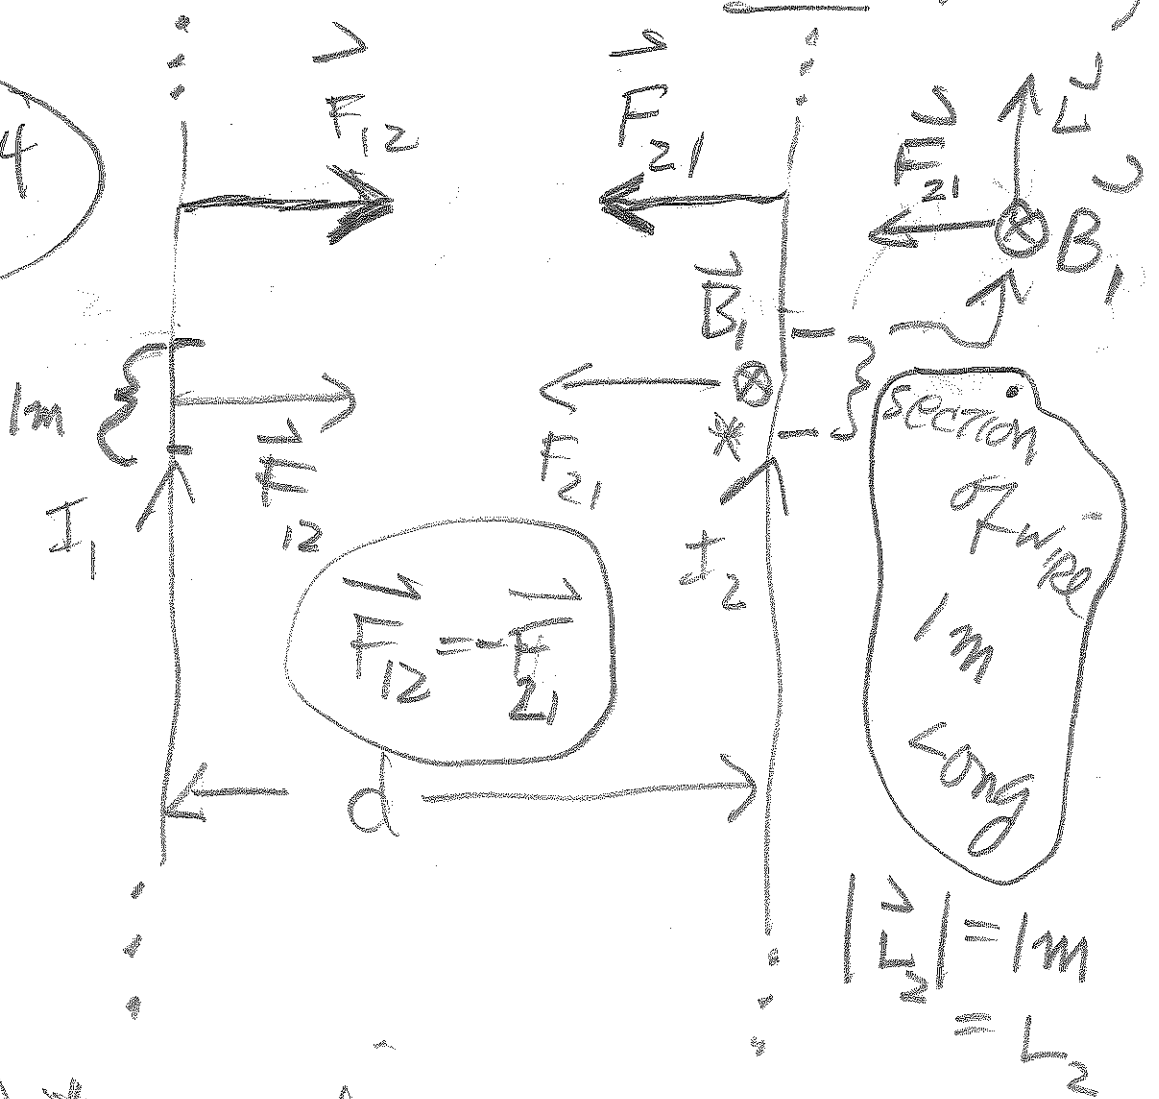 4
F₁₂
F₂₁
F₂₁
L
B₁
B₁
1m
F₁₂
F₂₁
*
I₁
I₂
F₁₂ = -F₂₁
d
section
of wire
1m
Long
|L₂| = 1m
= L₂